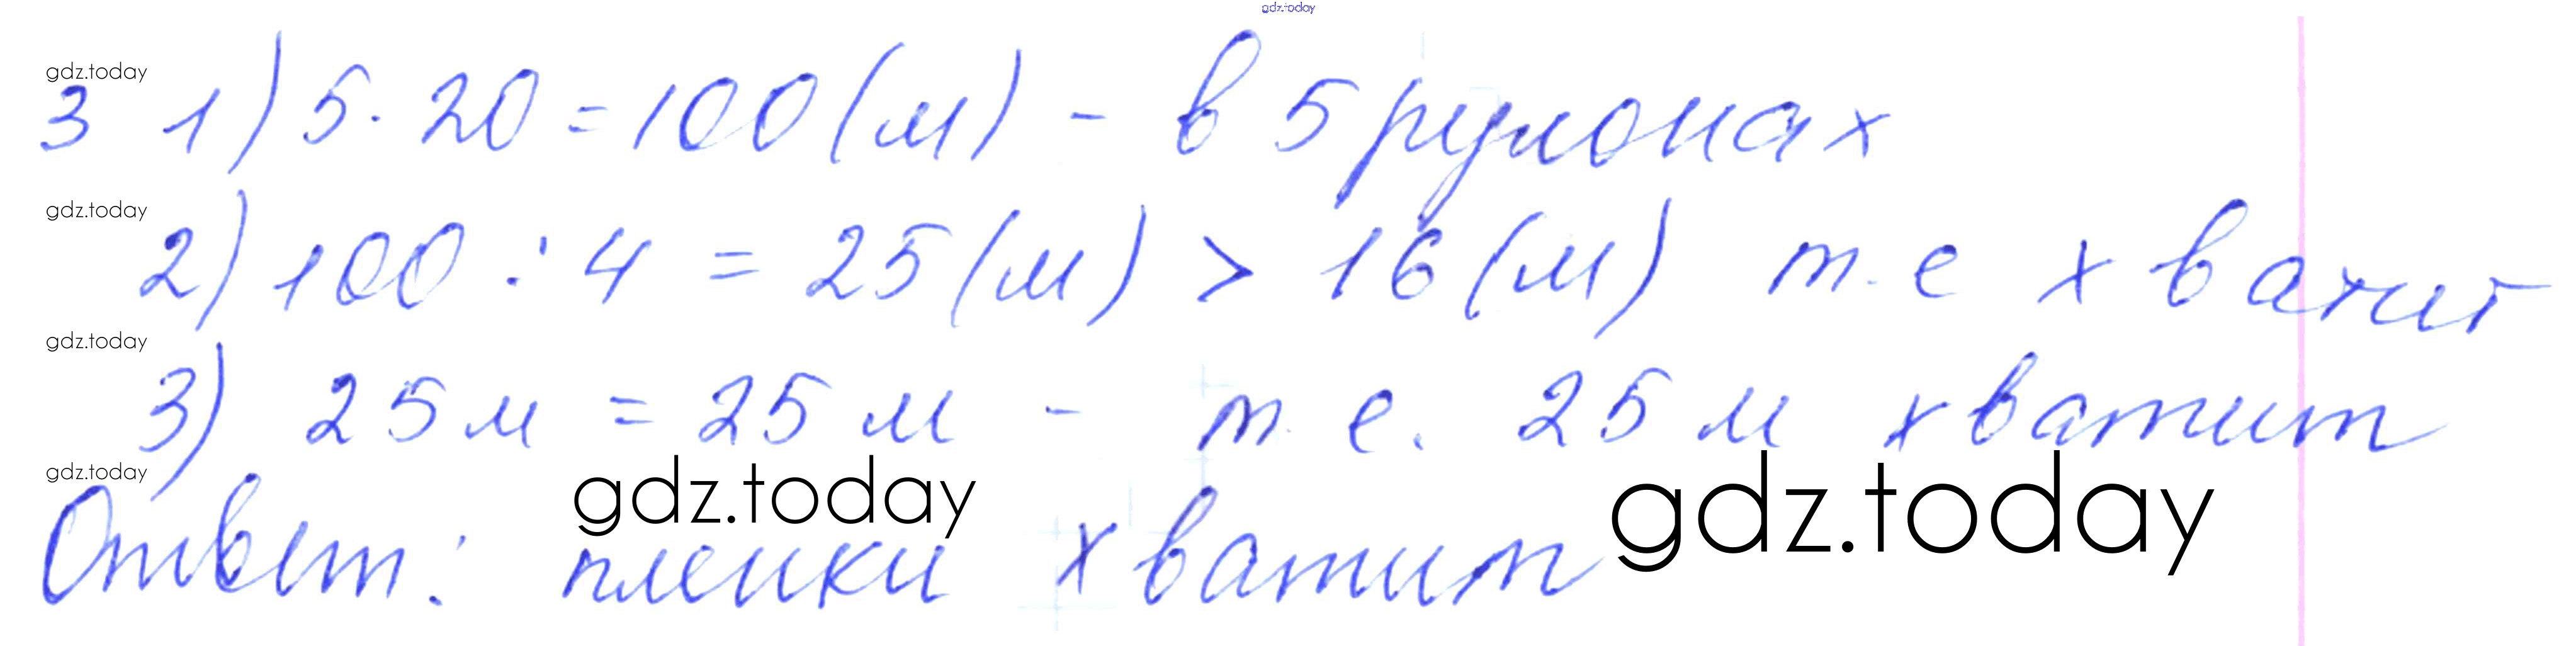 gdz.today
gdz.today
3 1) 5·20=100(м) - в 5 рулонах
gdz.today
2) 100 : 4 = 25(м) > 16(м) т.е хватит
gdz.today
3) 25м = 25м - т.е. 25м хватит
gdz.today
gdz.today
gdz.today
Ответ: пленки хватит